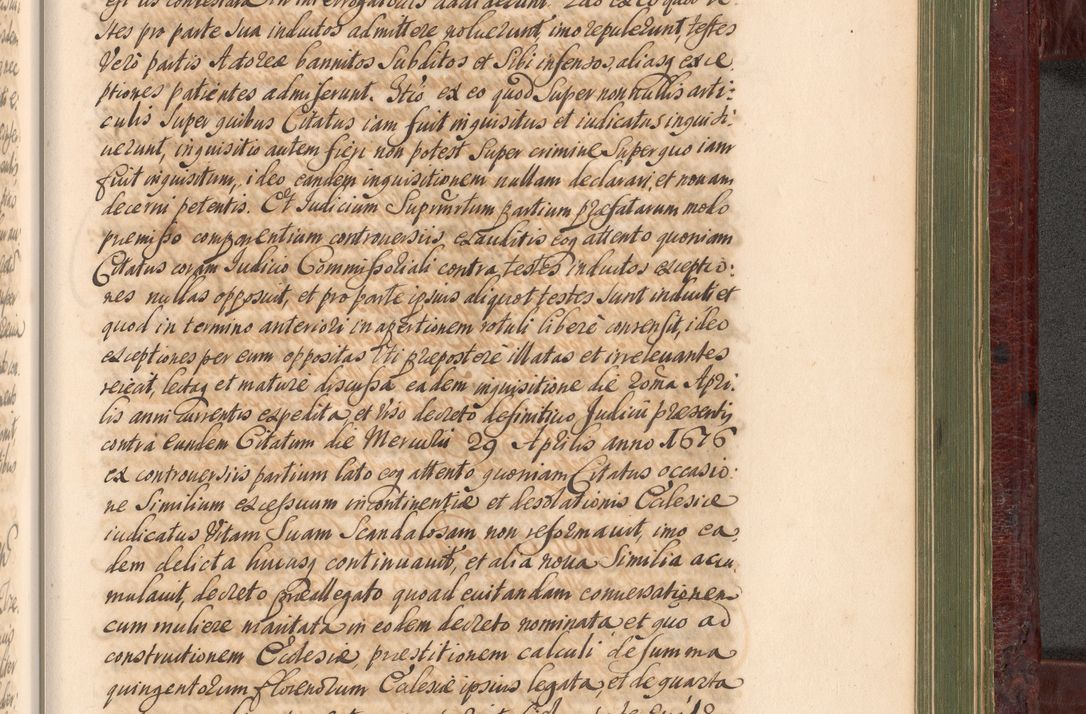 stes pro parte sua inductos admittere noluerunt, imo repulerunt, testes
Vero partis Actoreæ bannitos subditos et sibi infensos, aliasq exce
ptiones patientes admiserunt. Itio ex eo quod super nonnullis arti:
culis super quibus Citatus iam fuit inquisitus et iudicatus inquisi
uerunt, inquisitio autem fieri non potest super crimine super quo iam
fuit inquisitum, ideo eandem inquisitionem nullam declarari, et non am
decerni petentis. Et Iudicium Suprmrtum partium præfatarum modo
premisso comparentium controuersiis exauditis eoq attento quoniam
Citatus coram Iudicio Commissoriali contra testes inductos exceptio:
nes nullas opposuit, et pro parte ipsius aliquot testes sunt inducti et
quod in termino anteriori in apertionem rotuli libere consensit, ideo
exceptiones per eum oppositas Uti præpostere illatas et irreleuantes
reiecit, lectaq et mature discussa eadem inquisitione die Apri
lis anni currentis expedita, et Viso decreto definitiuo Iudicii præsentis
contra eundem Citatum die Mercurii 29 Aprilis anno 1676
ex controuersiis partium lato eoq attento quoniam Citatus occasio:
ne similium excessuum incontinentiæ et desolationis Ecclesiæ
iudicatus Vitam suam scandalosam non reformauit, imo ea
dem delicta hucusq continuauit, et alia noua similia accu
mulauit, decreto præallegato quoad euitandam conuersationem
cum muliere maritata in eodem decreto nominata et quo ad
constructionem Ecclesiæ, præstitionem calculi de summa
quingentorum florenorum Ecclesiæ ipsius legata, et de quarta